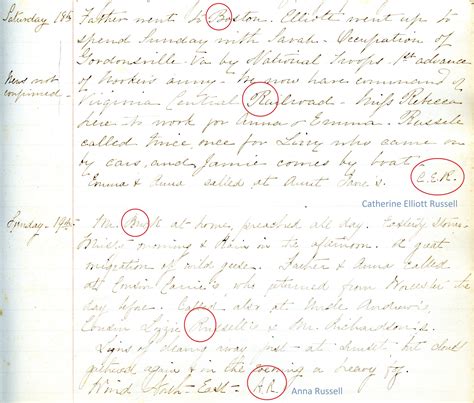 Saturday 18th Father went to Boston. Elliott went up to
spend Sunday with Sarah. Occupation of
Gordonsville Va by National Troops. 1st advance
News not confirmed. of army. We now have command of
Virginia Central Railroad. Miss Rebecca
here to work for Anna & Emma. Russell
called twice, once for Lizzy who came on
by cars, and Jamie comes by boat.
Emma & Anna called at Aunt Jane's. C.E.R.
Catherine Elliott Russell
Sunday 19th Mr. at home, preached all day.
morning & in the afternoon. A great
migration of wild geese. Father & Anna called
at Cousin Carrie's, who returned from Worcester the
day before. Called also at Uncle Andrew's,
Cousin Lizzie Russell's & Mr. Richardson's.
Signs of clearing away just at sunset, but clouds
gathered again & in the evening a heavy fog.
Wind North-East. A.R. Anna Russell